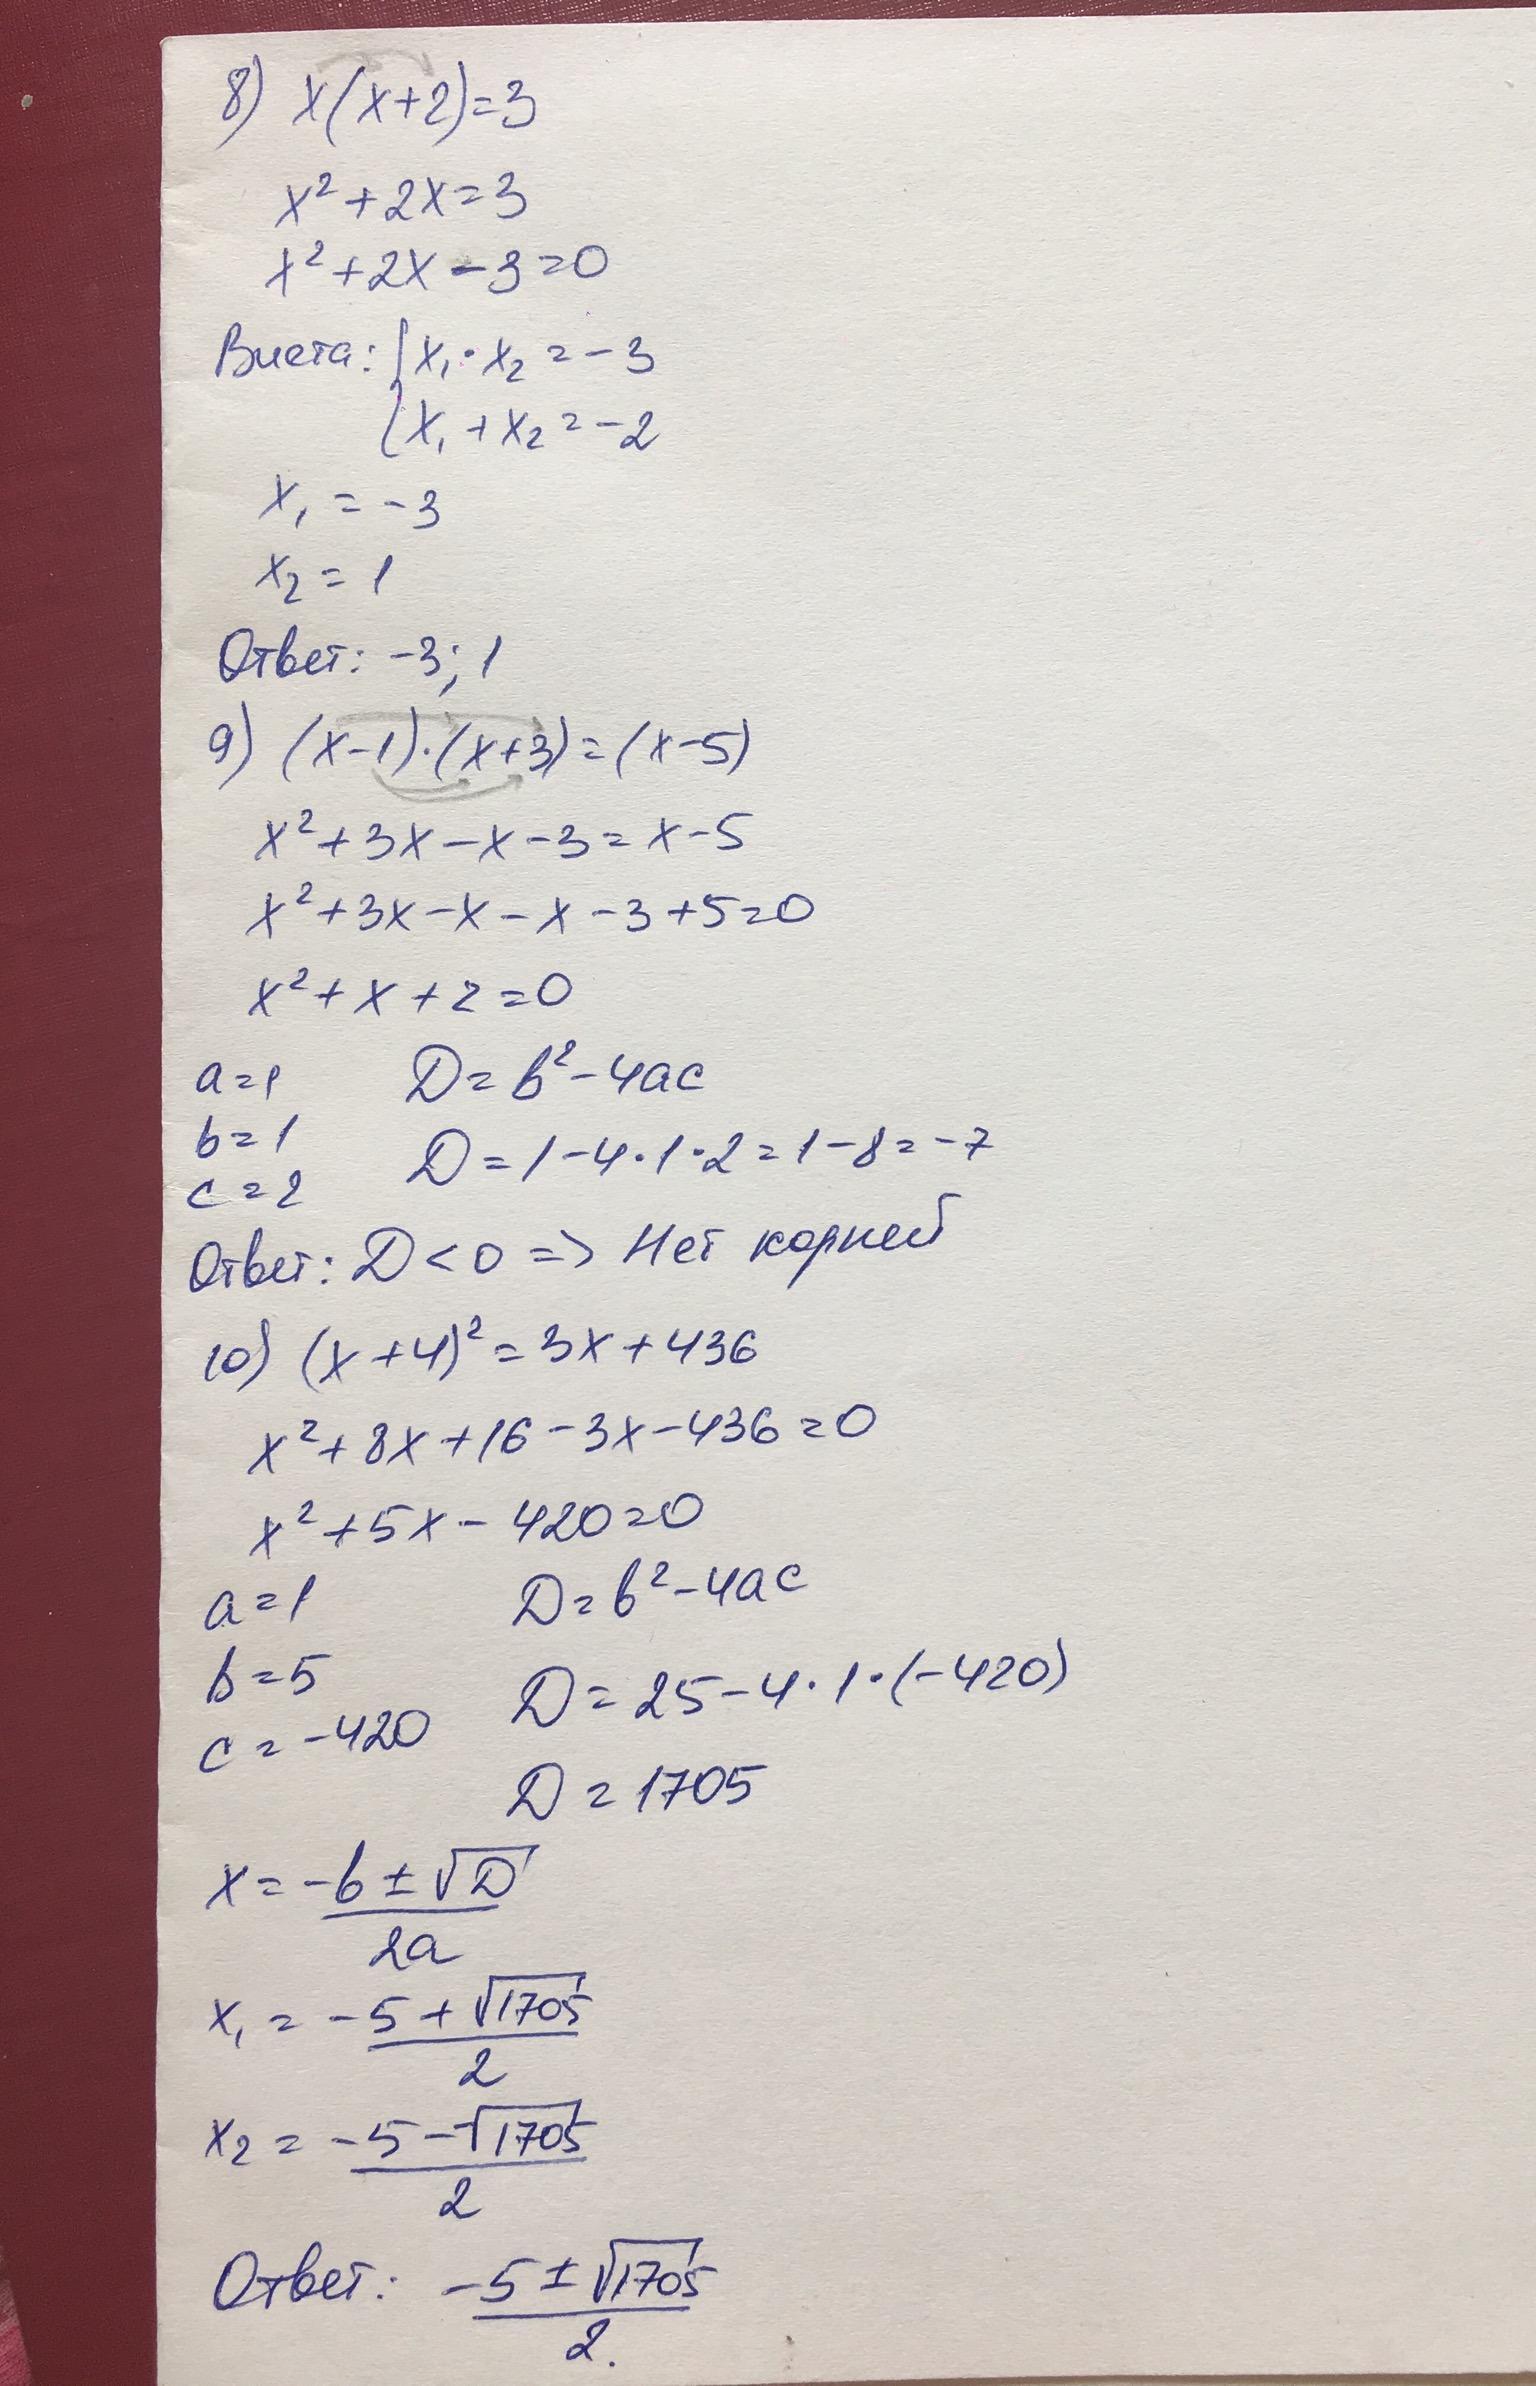 8) x(x+2)=3
x²+2x=3
x²+2x-3=0
Виета: { x₁·x₂=-3
x₁+x₂=-2
x₁=-3
x₂=1
Ответ: -3; 1
9) (x-1)·(x+3)=(x-5)
x²+3x-x-3=x-5
x²+3x-x-x-3+5=0
x²+x+2=0
a=1 D=b²-4ac
b=1
c=2 D=1-4·1·2=1-8=-7
Ответ: D<0 => Нет корней
10) (x+4)²=3x+436
x²+8x+16-3x-436=0
x²+5x-420=0
a=1 D=b²-4ac
b=5 D=25-4·1·(-420)
c=-420
D=1705
x=(-b±√D)/2a
x₁=(-5+√1705)/2
x₂=(-5-√1705)/2
Ответ: (-5±√1705)/2.